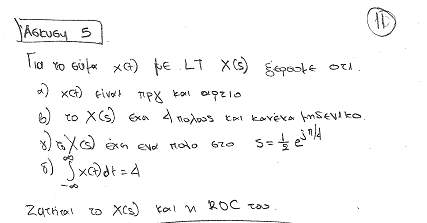 11
Άσκηση 5
Για το σήμα x(t) με LT X(s) ξέρουμε οτι.
α) x(t) είναι πργ και αρτιο
β) το X(s) εχει 4 πολους και κανενα μηδενικο.
γ) το X(s) εχει ενα πολο στο s = 1/2 e^{jπ/4}
δ) ∫_{-∞}^{∞} x(t)dt = 4
Ζητειται το X(s) και η ROC του.